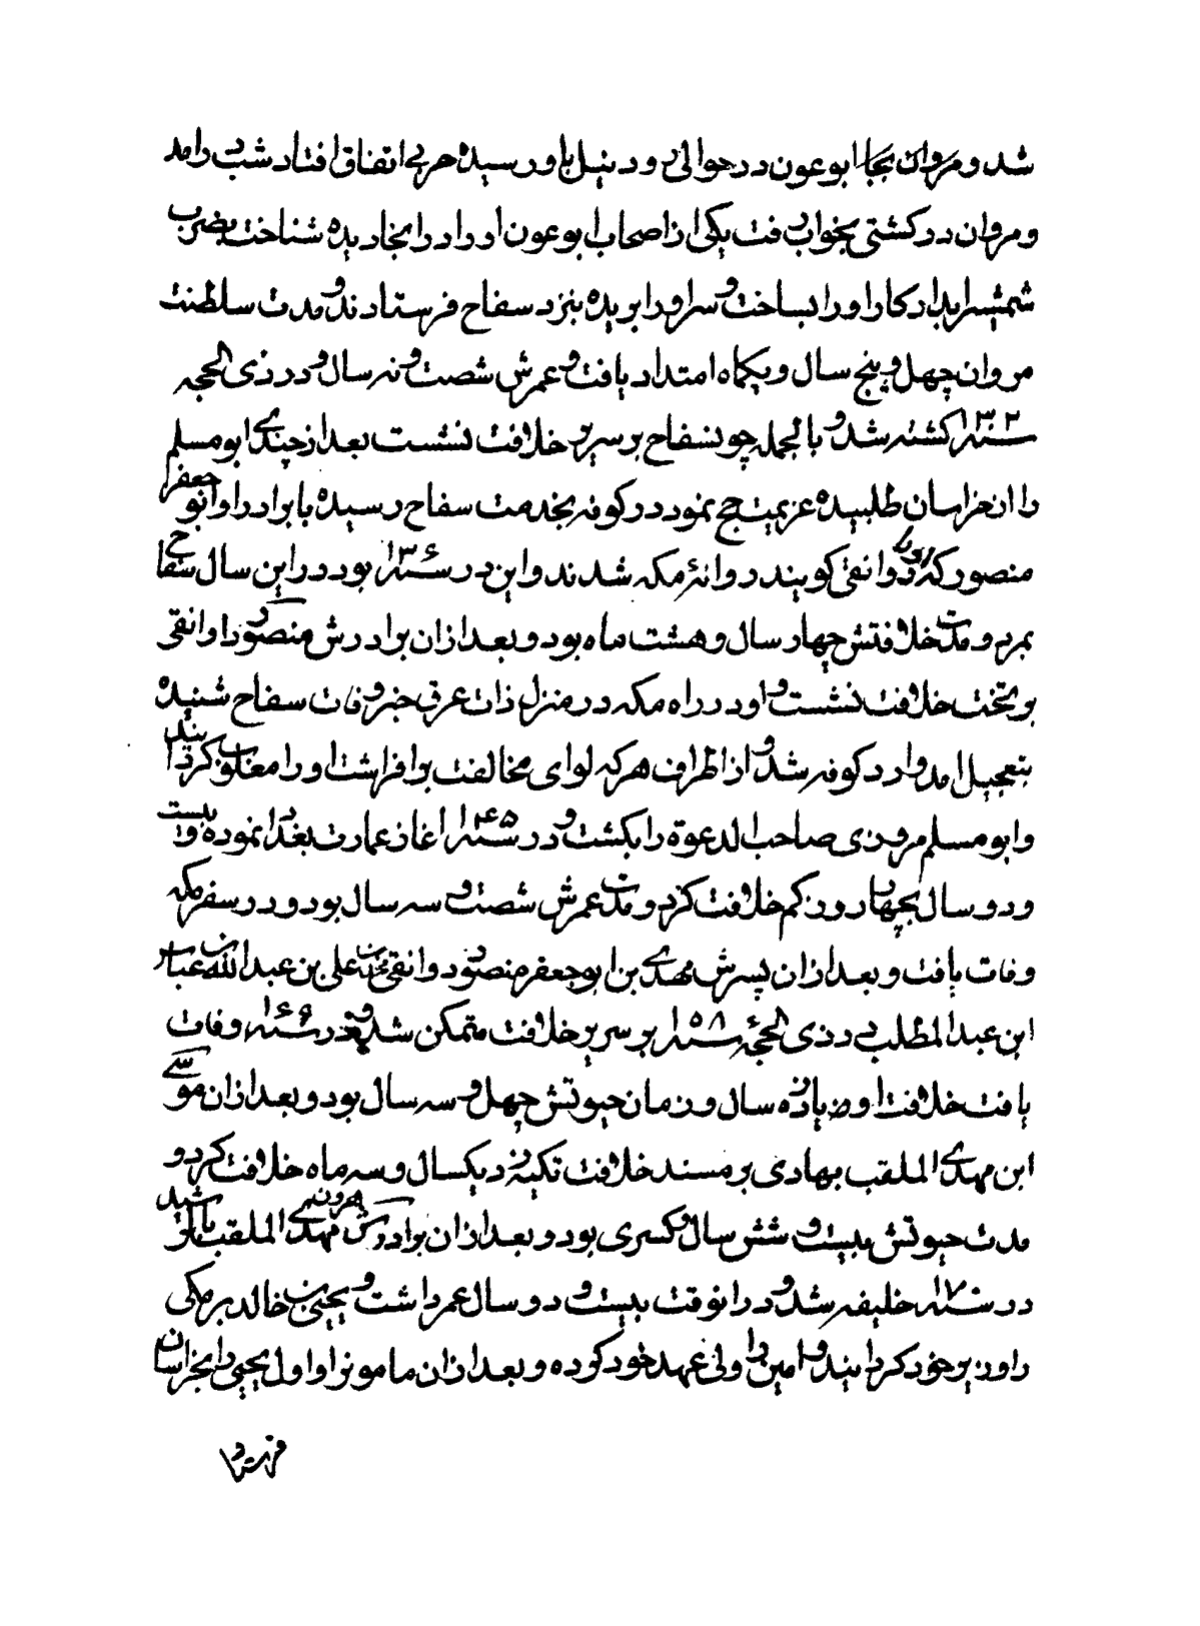 شد و مروان بجا ابو عون در حوالی رود نیل باو رسیده حربی اتفاق افتاد شب درامد
و مروان در کشتی بخواب رفت یکی از اصحاب ابو عون او را در انجا دیده شناخت بضرب
شمشیر ابدار کار او را بساخت و سر او را بریده بنزد سفاح فرستادند و مدت سلطنت
مروان چهل و پنج سال و یکماه امتداد یافت و عمرش شصت و نه سال و در ذی الحجه
سنه ۱۳۲ کشته شد و بالجمله چون سفاح بر سریر خلافت نشست بعد از چندی ابو مسلم
را از خراسان طلبیده عزیمت حج نمود در کوفه بخدمت سفاح رسیده با برادر او ابو جعفر
منصور که او را دوانقی کویند روانهٔ مکه شدند و این در سنه ۱۳۶ بود در این سال سفاح
بمرد و مدت خلافتش چهار سال و هشت ماه بود و بعد از ان برادرش منصور دوانقی
بر تخت خلافت نشست و او در راه مکه در منزل ذات عرق خبر وفات سفاح شنیده
بتعجیل امد وارد کوفه شد و از اطراف هر که لوای مخالفت برافراشت او را مغلوب کردانید
و ابو مسلم مروزی صاحب الدعوة را بکشت و در سنه ۱۴۵ اغاز عمارت بغداد نموده و بیست
و دو سال بچهار روز کم خلافت کرد و مدت عمرش شصت و سه سال بود و در سفر مکه
وفات یافت و بعد از ان پسرش مهدی بن ابو جعفر منصور دوانقی بن محمد بن علی بن عبد الله بن عباس
ابن عبد المطلب در ذی الحجهٔ سنه ۱۵۸ بر سریر خلافت متمکن شد و در سنه ۱۶۹ وفات
یافت خلافت او یازده سال و زمان حیوتش چهل و سه سال بود و بعد از ان موسی
ابن مهدی الملقب بهادی بر مسند خلافت تکیه زد یکسال و سه ماه خلافت کرد و
مدت حیوتش بیست و شش سال و کسری بود و بعد از ان برادرش هرون بن مهدی الملقب بالرشید
در سنه ۱۷۰ خلیفه شد و در انوقت بیست و دو سال عمر داشت و یحیی بن خالد برمکی
را وزیر خود کردانید و امین را ولی عهد خود کرده و بعد از ان مامونرا و اول یحیی را بخراسان
فرستاد